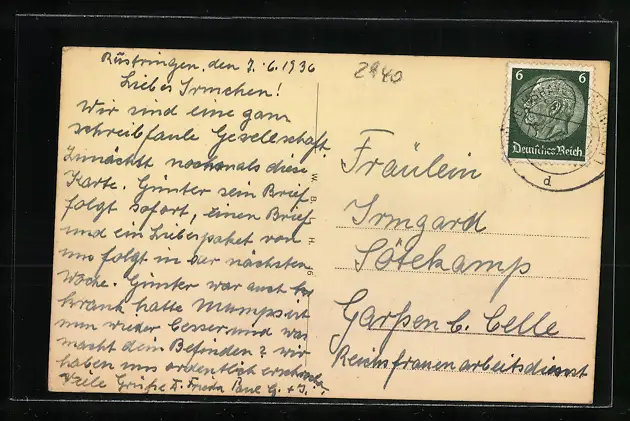 Rüstringen, den 7.6.1936
2940
Liebes Irmchen!
Wir sind eine ganz
schreibfaule Gesellschaft
Zunächst nochmals diese
Karte. Günter sein Brief
folgt sofort, einen Brief
und ein Lieberpaket von
uns folgt in der nächsten
Woche. Günter war auch
krank hatte Mumps ist
nun wieder besser und was
macht dein Befinden? Wir
haben uns ordentlich
Viele Grüße
6 6
Deutsches Reich
d
W. B. H.
Fräulein
Irmgard
Sötekamp
Garßen b. Celle
Reichsfrauenarbeitsdienst